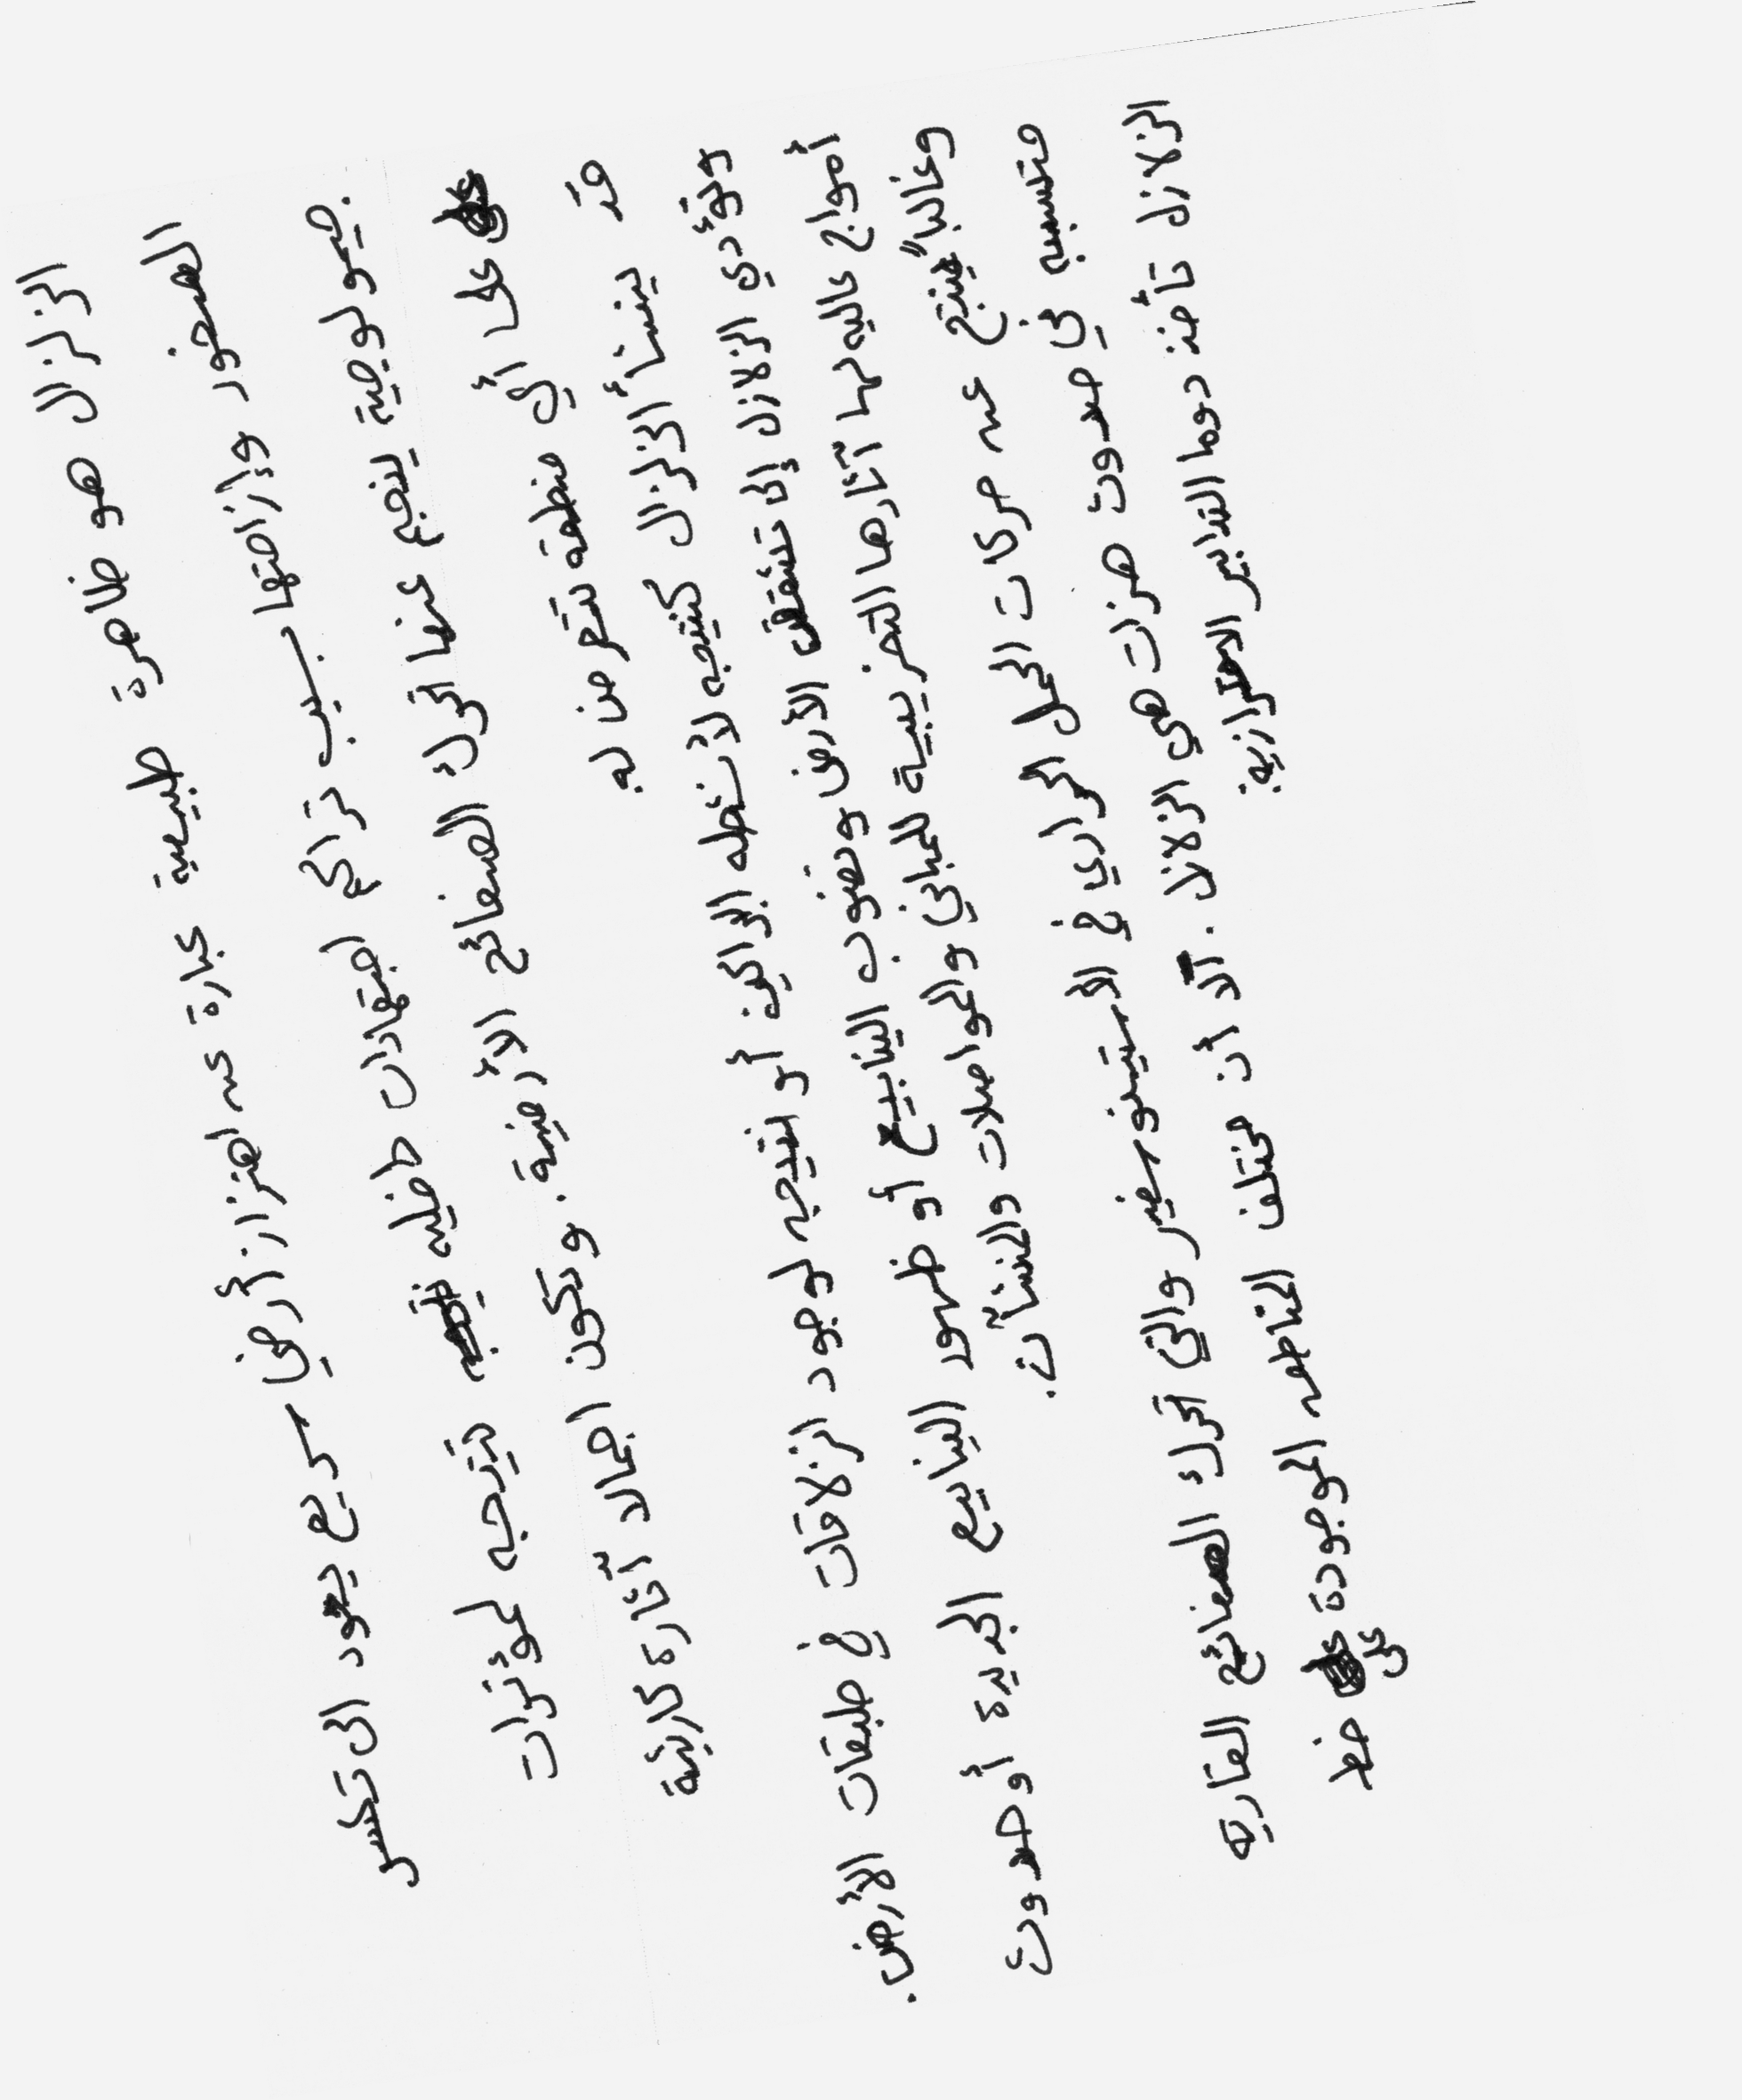 الزلزال هو ظاهرة طبيعية عبارة عن اهتزاز أرضي سريع يعود الى تكسر
الصخور وإزاحتها بسبب تراكم اجتهادات داخليه نتيجه لمؤثرات
جيولوجية ينجم عنها تحرك الصفائح الأرضية. وتكون اجمالا آثاره كارثية
على أي منطقه تتعرض له
قد ينشأ الزلزال كنتيجه لأنشطه البراكين أو نتيجه لوجود انزلاقات في طبقات الأرض.
وتؤدي الزلازل إلى تشقق الأرض ونضوب الينابيع أو ظهور الينابيع الجديدة أو حدوث
أمواج عاليه لها آثارها التخريبية للمباني والمواصلات والمنشآت.
وغالباً ينتج عن حركات الحمل الحراري في الأستينوسفير والتي تحرك الصفائح القاريه
متسببه في حدوث هزات هي الزلازل. الا أن مختلف المناطق الموجودة على خط
الزلازل تأخذ دوما التدابير الاحترازية.